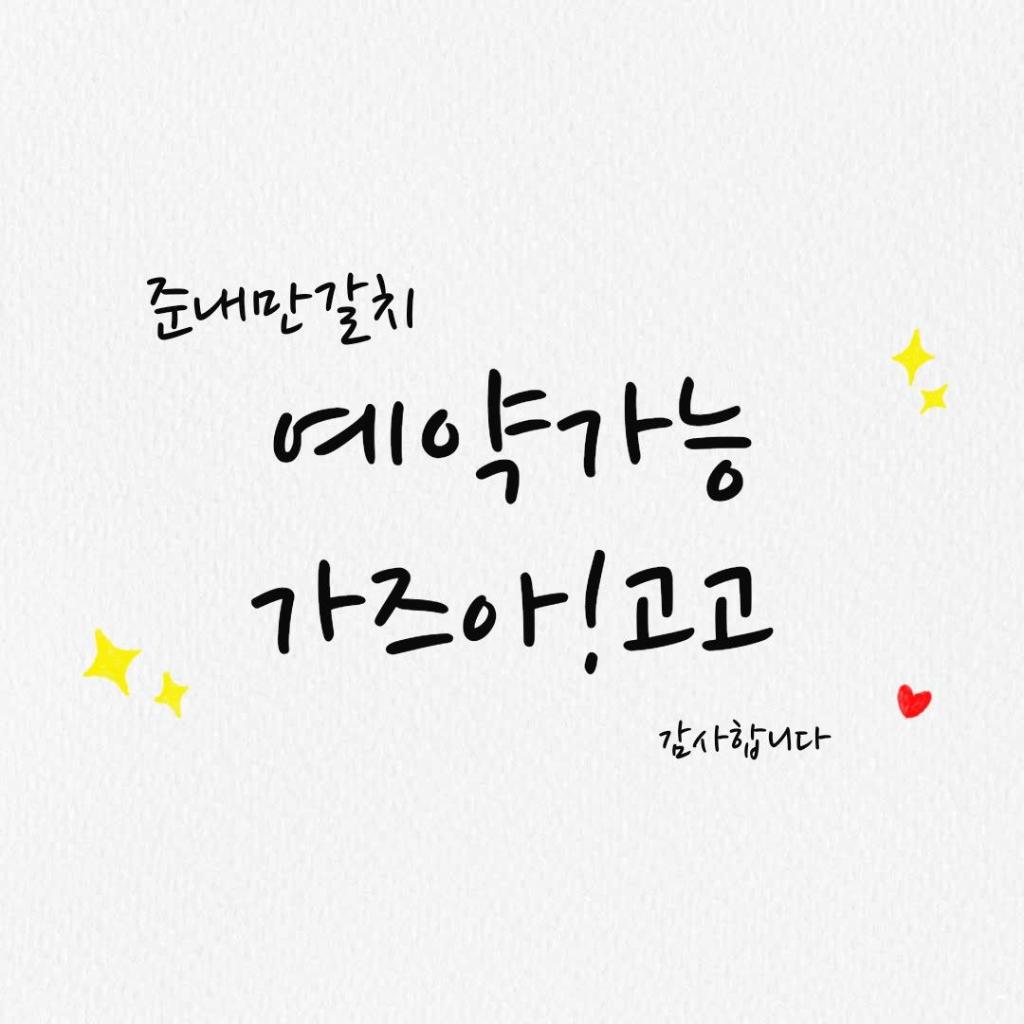 준내만갈치
예약가능
가즈아!고고
감사합니다